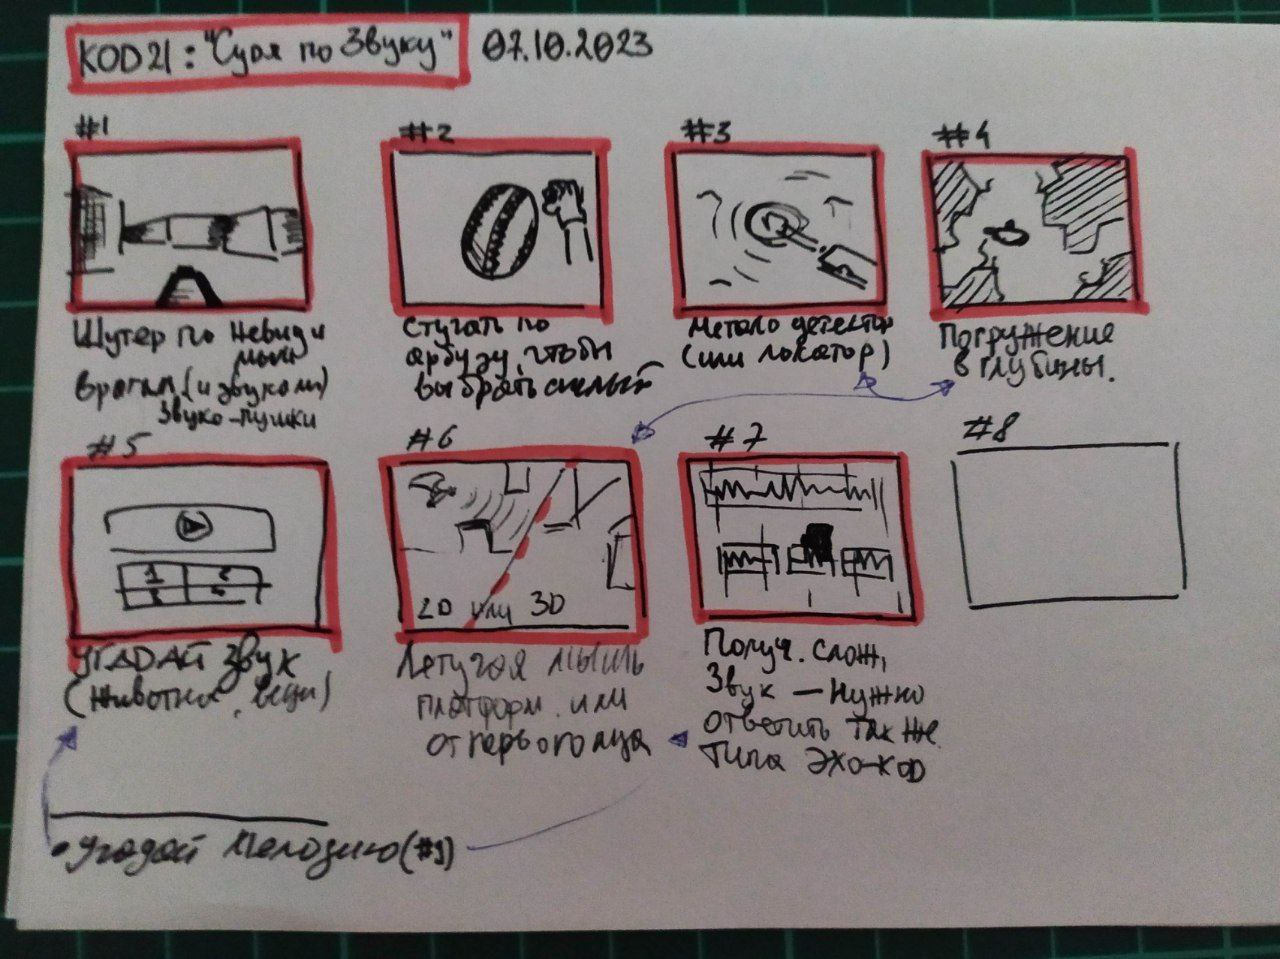 KOD21: "Судя по Звуку" 07.10.2023
#1
Шутер по Невиди
мым
врагам (и звуком)
Звуко-пушки
#2
Стучать по
арбузу, чтобы
выбрать спелый
#3
Метало детектор
(или локатор)
#4
Погружение
в глубины.
#5
1 2
3 4
УГАДАЙ звук
(животных, вещи)
#6
2D или 3D
Летучая мышь
платформ. или
от первого лица
#7
Получ. слож,
Звук — Нужно
ответить так же.
Типа эхо-код
#8
• Угадай Мелодию (#1)